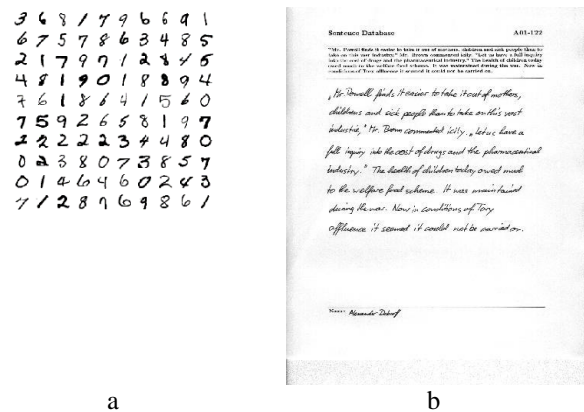 3 6 8 1 7 9 6 6 9 1
6 7 5 7 8 6 3 4 8 5
2 1 7 9 7 1 2 8 4 6
4 8 1 9 0 1 8 8 9 4
7 6 1 8 6 4 1 5 6 0
7 5 9 2 6 5 8 1 9 7
2 2 2 2 2 3 4 4 8 0
0 2 3 8 0 7 3 8 5 7
0 1 4 6 4 6 0 2 4 3
7 1 2 8 7 6 9 8 6 1
a
Sentence Database A01-122
"Mr. Powell finds it easier to take it out of mothers, children and sick people than to
take on this vast industry," Mr. Brown commented icily. "Let us have a full inquiry
into the cost of drugs and the pharmaceutical industry." The health of children today
owed much to the welfare food scheme. It was maintained during the war. Now in
conditions of Tory affluence it seemed it could not be carried on.
„Mr. Powell finds it easier to take it out of mothers,
childrens and sick people than to take on this vast
industrie," Mr. Brown commented icily. „Let us have a
full inquiry into the cost of drugs and the pharmaceutical
industry." The health of children today owed much
to the welfare food scheme. It was maintained
during the war. Now in conditions of Tory
affluence it seemed it could not be carried on.
Name:
b